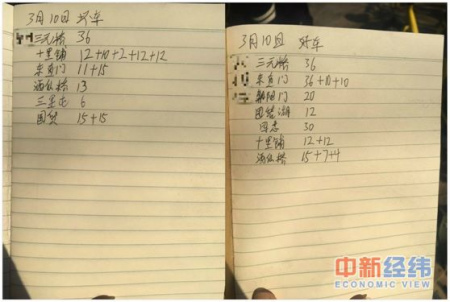 3月10日 坏车
三元桥 36
十里铺 12+10+2+12+12
东直门 11+15
酒仙桥 13
三里屯 6
国贸 15+15
3月10日 好车
三元桥 36
东直门 36+10+10
朝阳门 20
团结湖 12
30
十里铺 12+12
酒仙桥 15+7+4
中新经纬
ECONOMIC VIEW